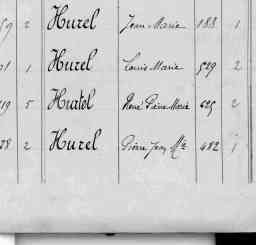 59 2 Hurel Jean Marie 188 1
71 1 Hurel Louis Marie 529 2
519 5 Hurtel René Pierre Marie 625 2
28 2 Hurel Pierre Jean Mie 482 1